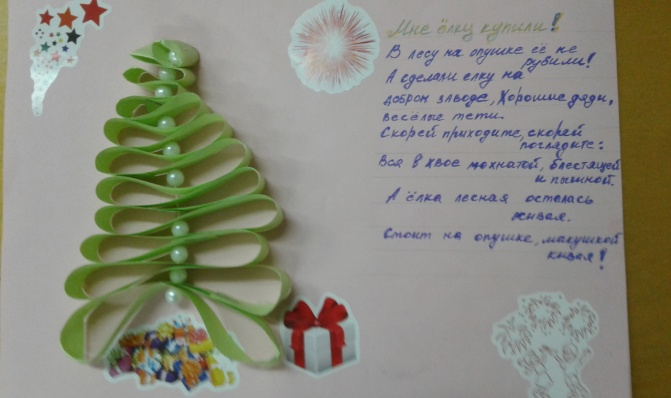 Мне ёлку купили!
В лесу на опушке её не
рубили!
А сделали елку на
добром заводе, Хорошие дяди,
весёлые тети.
Скорей приходите, скорей
поглядите:
Вся в хвое мохнатой, блестящей
и пышной.
А ёлка лесная осталась
живая.
Стоит на опушке, макушкой
кивая!